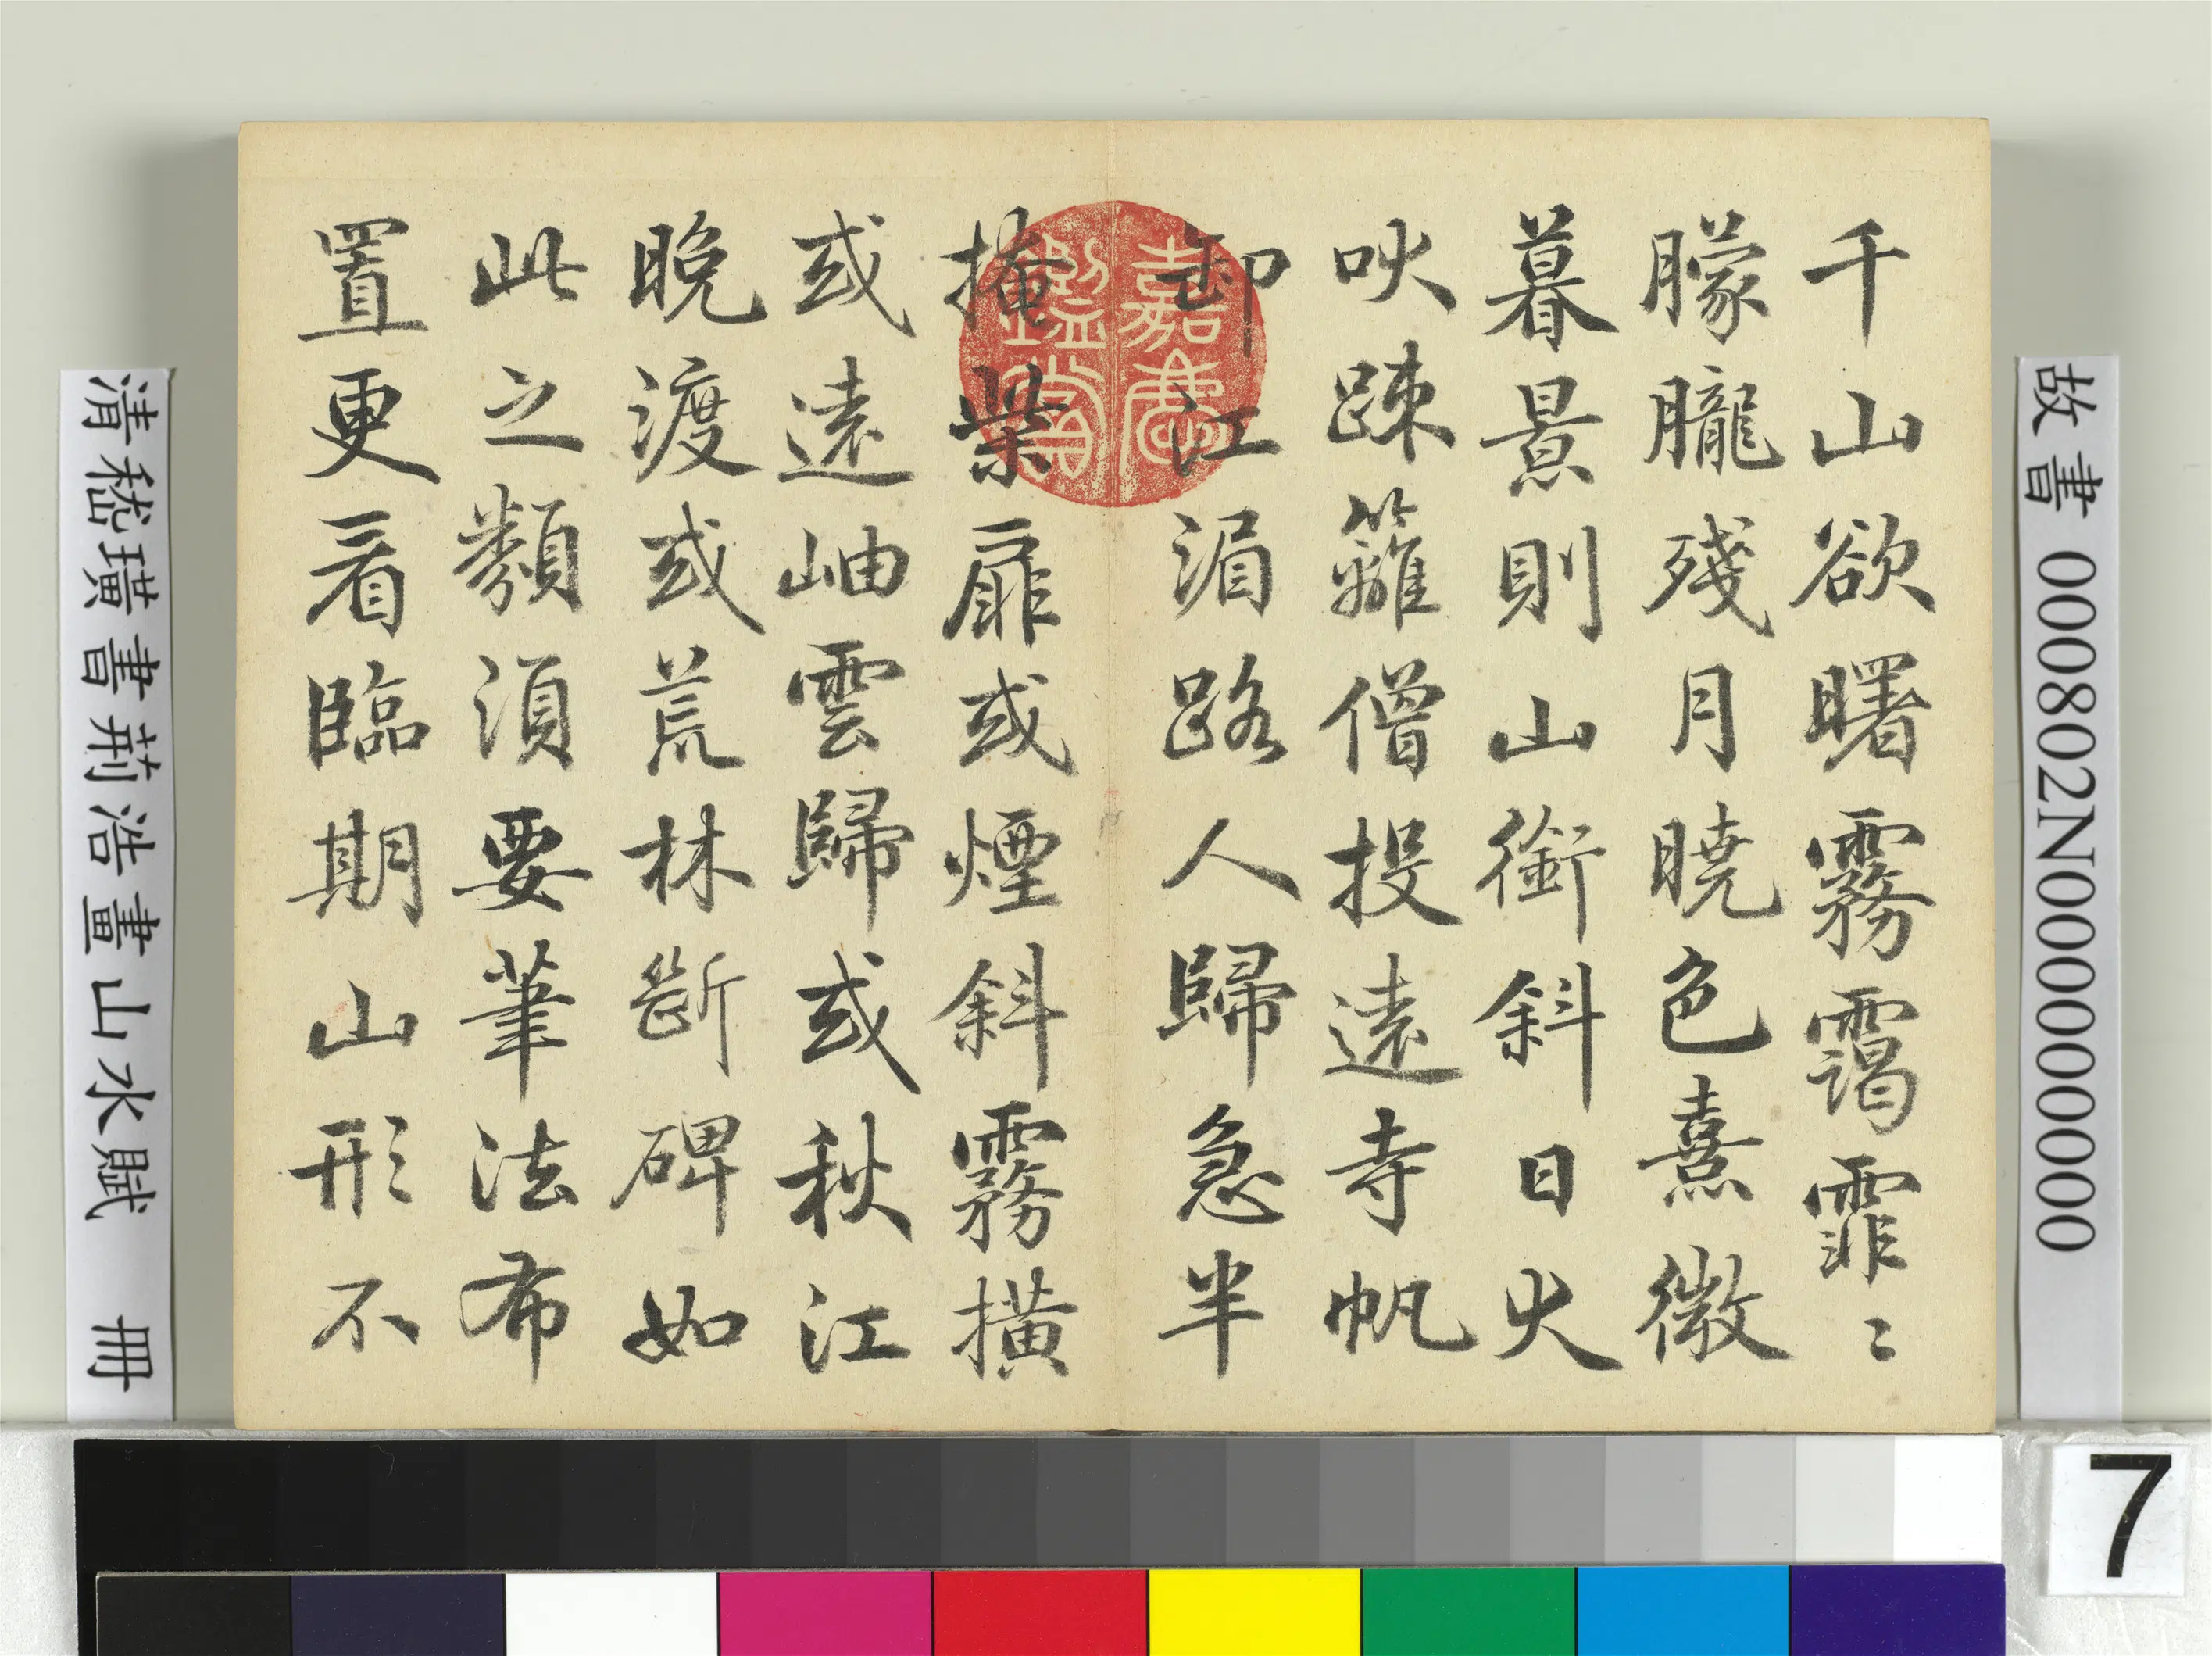 故書 000802N000000000
千山欲曙霧靄霏〻
朦朧殘月曉色熹微
暮景則山銜斜日犬
吠踈籬僧投遠寺帆
卸江湄路人歸急半
掩柴扉或煙斜霧橫
或遠岫雲歸或秋江
晚渡或荒林斷碑如
此之類須要筆法布
置更看臨期山形不
嘉慶鑑賞
清嵇璜書荊浩畫山水賦 冊
7